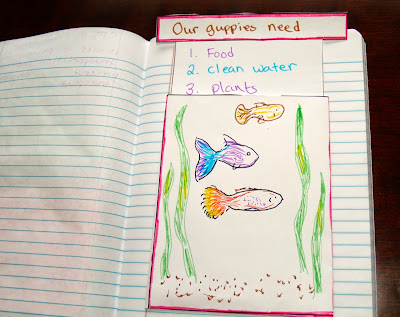 Our guppies need
1. Food
2. clean water
3. plants